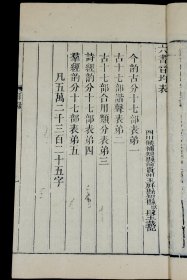 六書音均表
四川候補知縣前貴州玉屏縣知縣段玉裁
今韵古分十七部表第一
古十七部諧聲表第二
古十七部合用類分表第三
詩經韵分十七部表第四
羣經韵分十七部表第五
凡五萬二千三百二十五字